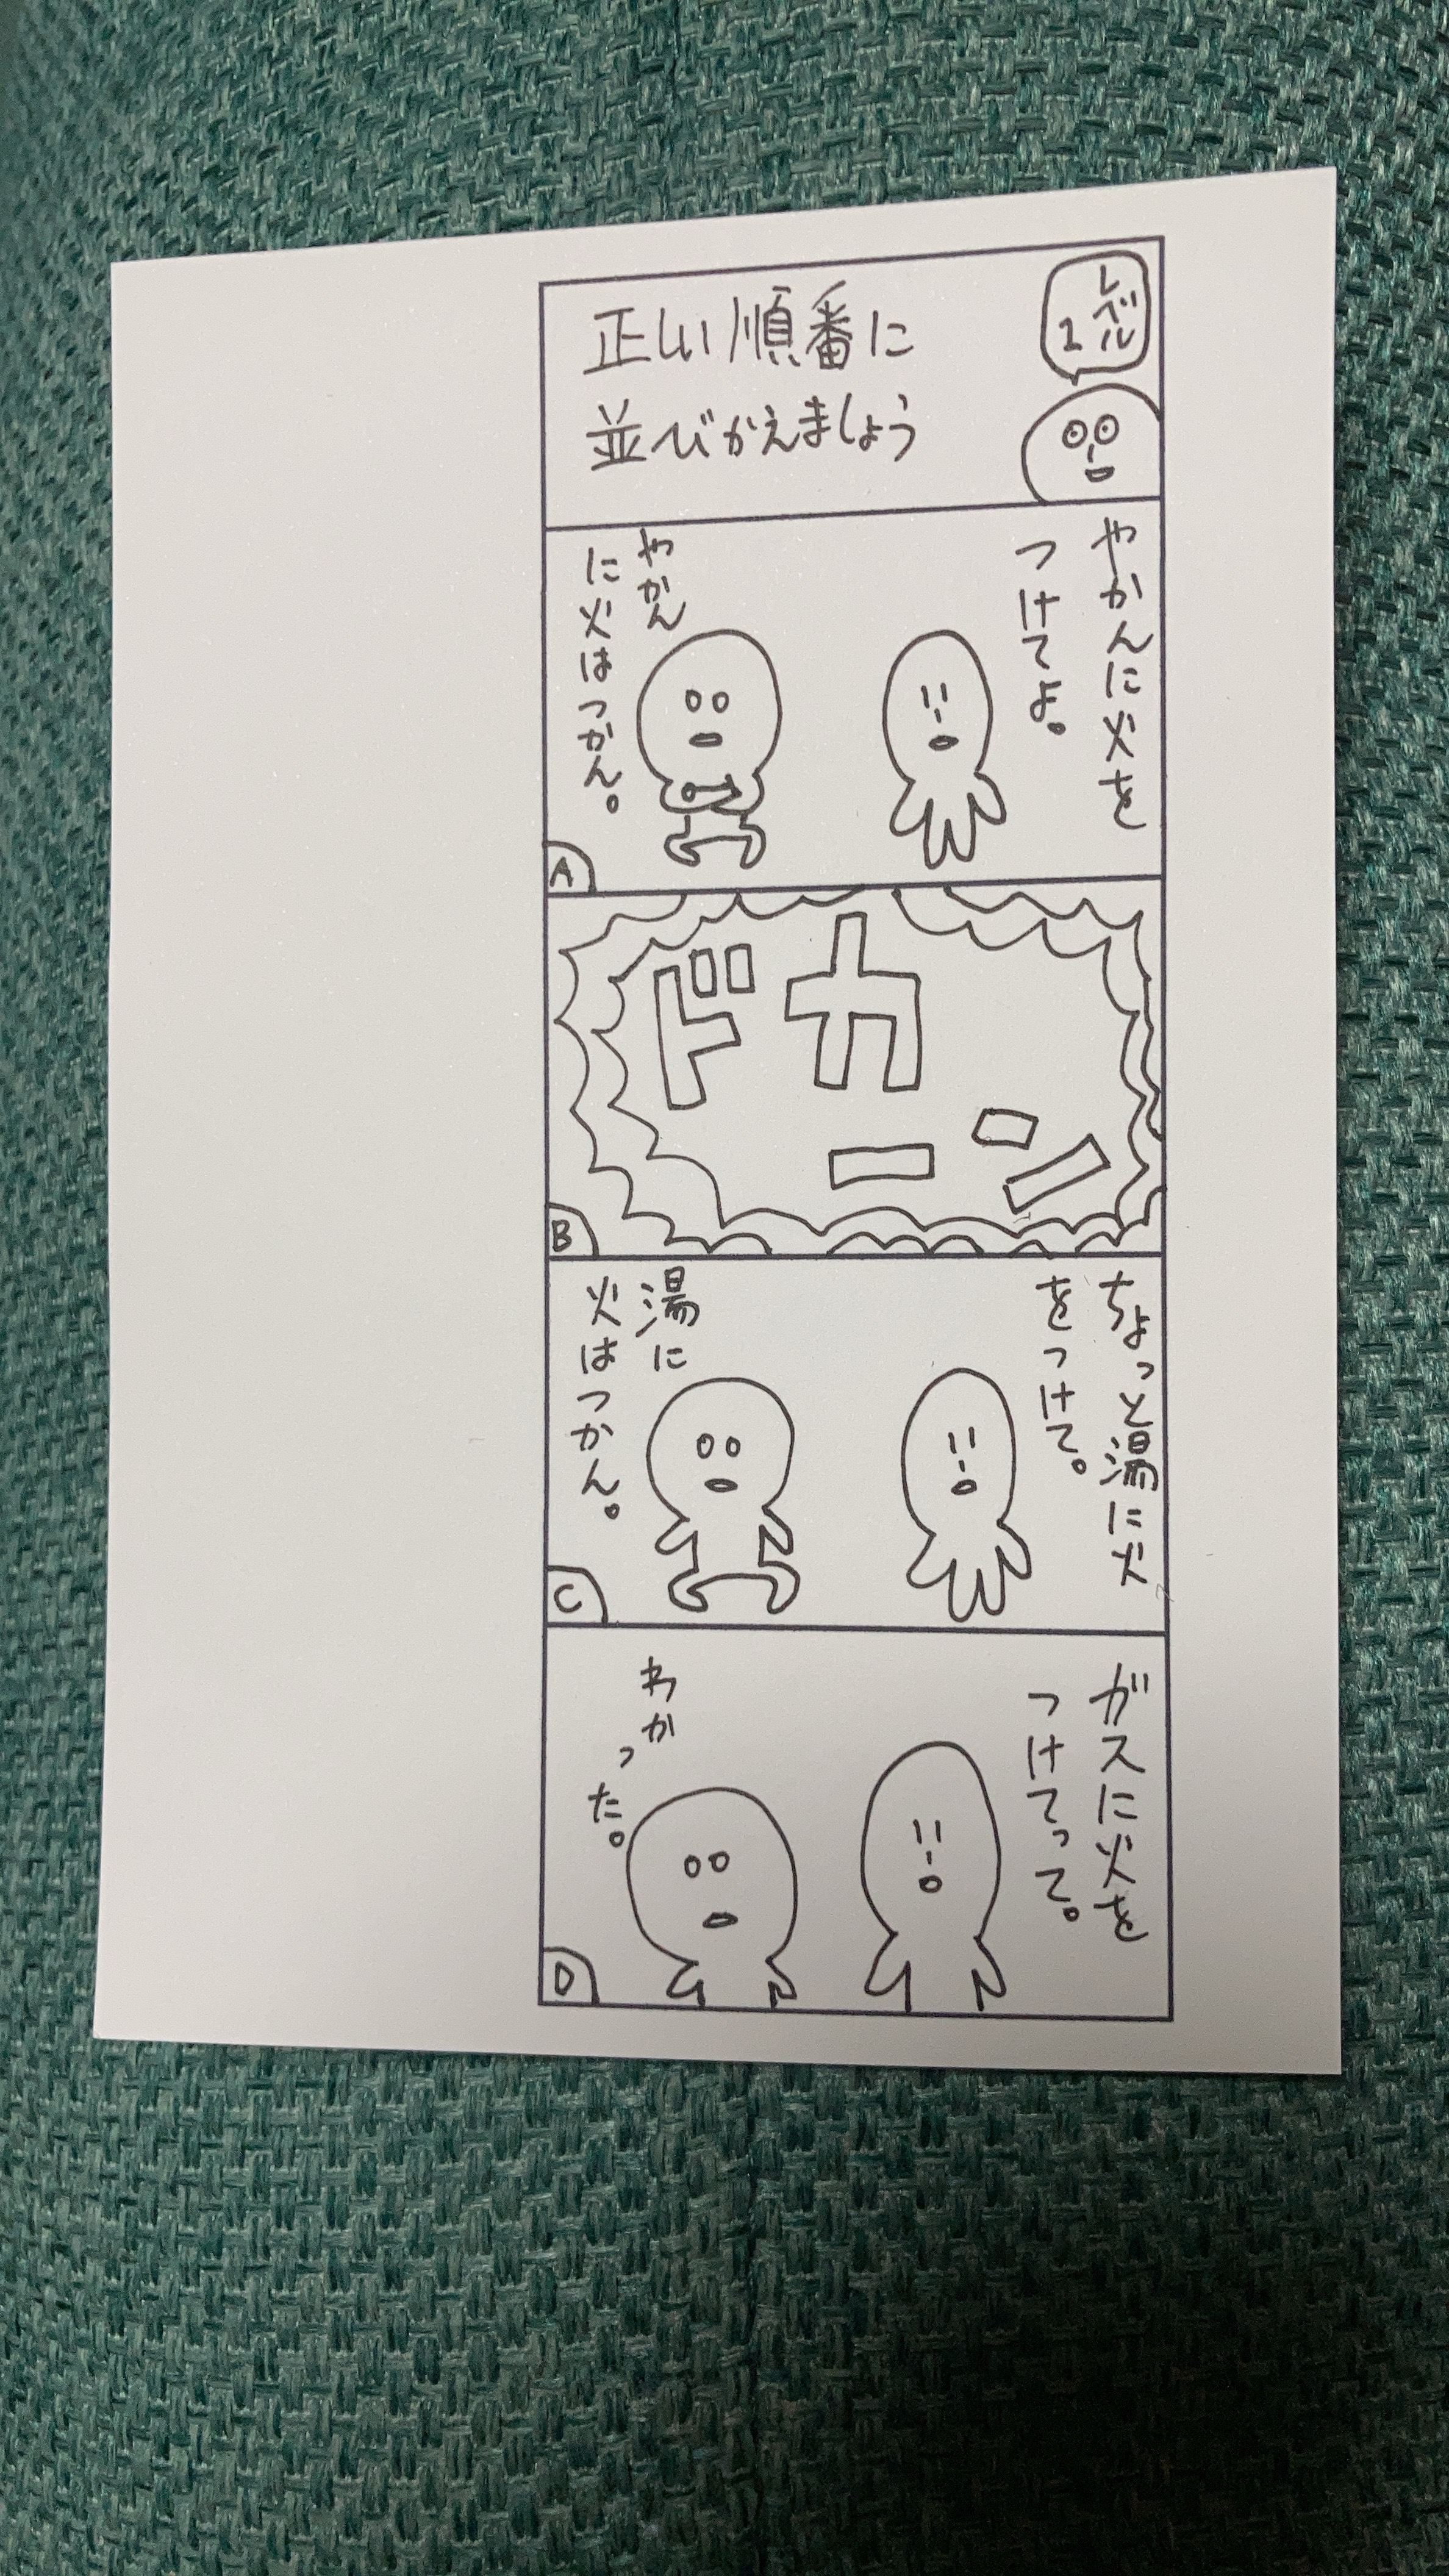 正しい順番に
並びかえましょう
レベル
1
やかんに火を
つけてよ。
やかん
に火はつかん。
A
ドカーン
B
ちょっと湯に火
をつけて。
湯に
火はつかん。
C
ガスに火を
つけてって。
わかった。
D